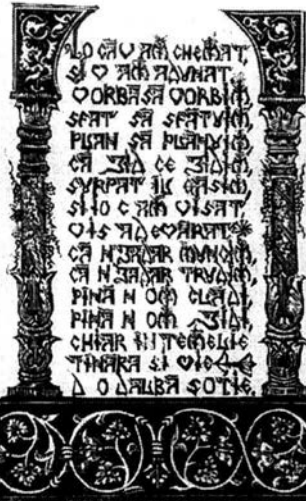 IO CA V AM CHEMAT,
SI V AM ADUNAT
VORBA SA VORBIM,
SFAT SA SFATVIM,
PLAN SA PLANVIM,
CĂ ZID CE ZIDIM,
SVRPAT IL GASIM,
SI IO C AM VISAT
VIS ADEVARAT
CĂ N ZADAR MUNCIM,
CĂ N ZADAR TRUDIM,
PINĂ N OM CLĂDI,
PINĂ N OM ZIDI,
CHIAR IN TEMELIE
TINARA SI VIE
D O DALBĂ SOTIE.